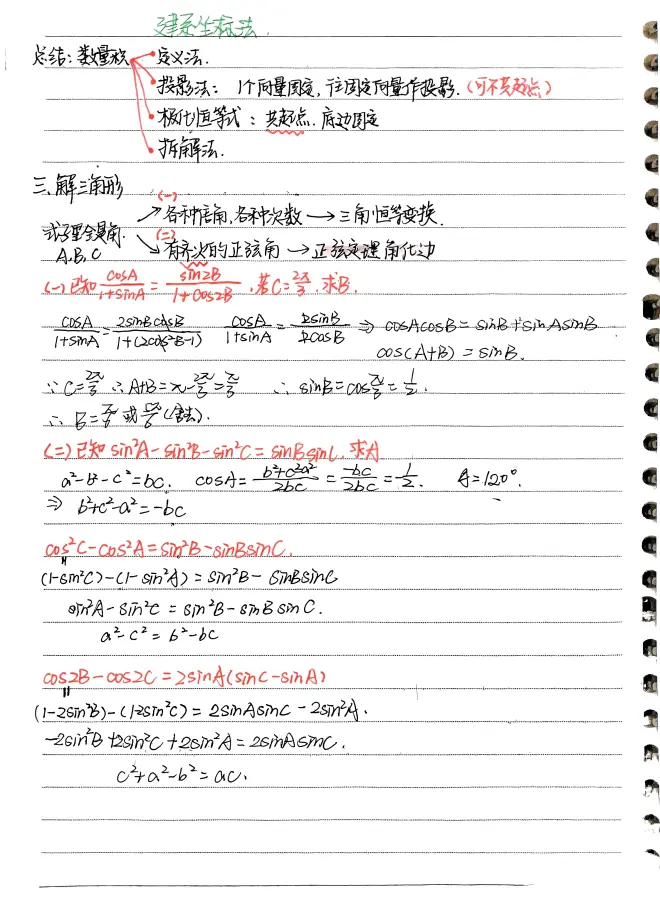 建系坐标法.
总结: 数量积 定义法.
投影法: 1个向量固定, 往固定向量作投影. (可不共起点)
极化恒等式: 共起点. 底边固定
拆解法.
三、解三角形
(一)
各种倍角, 各种次数 → 三角恒等变换.
式子里全是角. (二)
A, B, C 有齐次的正弦角 → 正弦定理角化边
(一) 已知 cosA/(1+sinA) = sin2B/(1+cos2B), 若C=2π/3, 求B.
cosA/(1+sinA) = 2sinBcosB/(1+(2cos²B-1)) cosA/(1+sinA) = 2sinB/2cosB ⇒ cosAcosB = sinB+sinAsinB
cos(A+B) = sinB.
∵ C=2π/3 ∴ A+B=π-2π/3=π/3 ∴ sinB=cosπ/3=1/2.
∴ B=π/6 或 5π/6 (舍去).
(二) 已知 sin²A-sin²B-sin²C = sinBsinC, 求A
a²-b²-c²=bc. cosA = (b²+c²-a²)/2bc = -bc/2bc = -1/2. A=120°.
⇒ b²+c²-a²=-bc
cos²C-cos²A=sin²B-sinBsinC.
(1-sin²C)-(1-sin²A)=sin²B-sinBsinC
sin²A-sin²C = sin²B-sinBsinC.
a²-c²=b²-bc
cos2B-cos2C=2sinA(sinC-sinA)
(1-2sin²B)-(1-2sin²C)=2sinAsinC-2sin²A.
-2sin²B+2sin²C+2sin²A=2sinAsinC.
c²+a²-b²=ac.